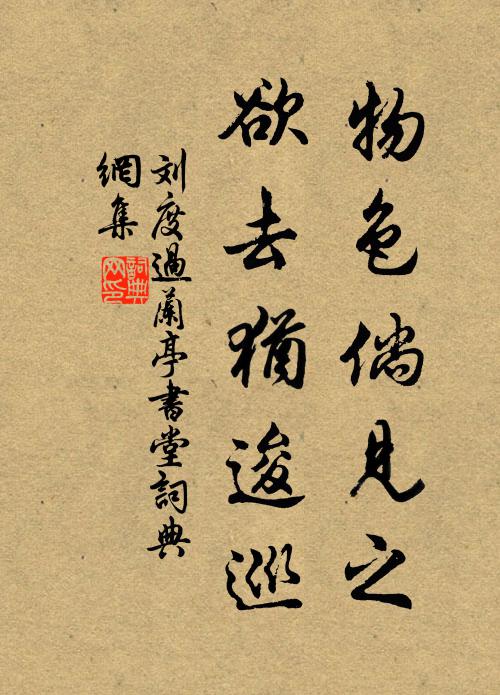 物色倘見之
欲去猶逡巡
刘度過蘭亭書堂詞典
網集
詞典
网印